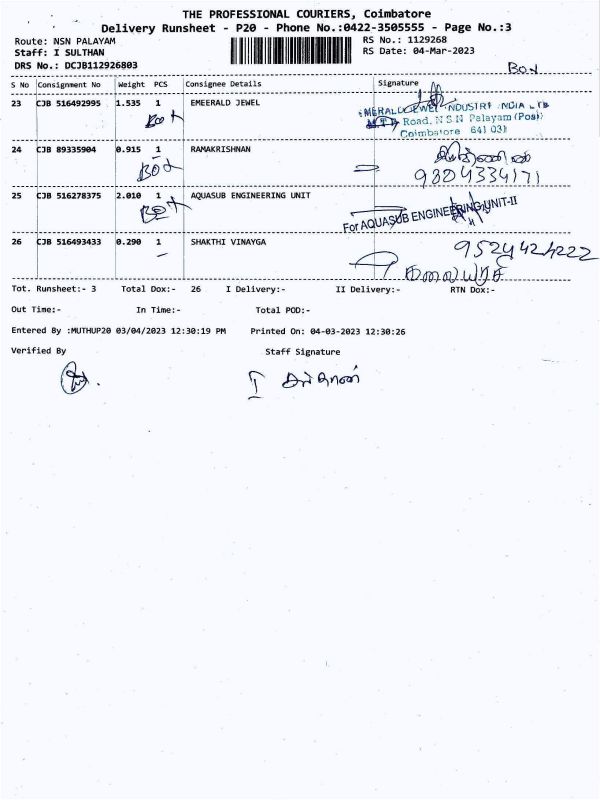 THE PROFESSIONAL COURIERS, Coimbatore
Delivery Runsheet - P20 - Phone No.:0422-3505555 - Page No.:3
Route: NSN PALAYAM RS No.: 1129268
Staff: I SULTHAN RS Date: 04-Mar-2023
DRS No.: DCJB112926803
Box
S No Consignment No Weight PCS Consignee Details Signature
23 CJB 516492995 1.535 1 EMEERALD JEWEL
Box
EMERALD JEWEL INDUSTRY INDIA LTD
Road, N.S.N Palayam (Post)
Coimbatore 641 031
24 CJB 89335904 0.915 1 RAMAKRISHNAN
Box
9804334171
25 CJB 516278375 2.010 1 AQUASUB ENGINEERING UNIT
Box
For AQUASUB ENGINEERING UNIT-II
26 CJB 516493433 0.290 1 SHAKTHI VINAYGA
9524424222
கலையரசி
Tot. Runsheet:- 3 Total Dox:- 26 I Delivery:- II Delivery:- RTN Dox:-
Out Time:- In Time:- Total POD:-
Entered By :MUTHUP20 03/04/2023 12:30:19 PM Printed On: 04-03-2023 12:30:26
Verified By Staff Signature